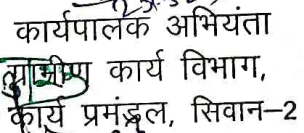 कार्यपालक अभियंता
ग्रामीण कार्य विभाग,
कार्य प्रमंडल, सिवान–2